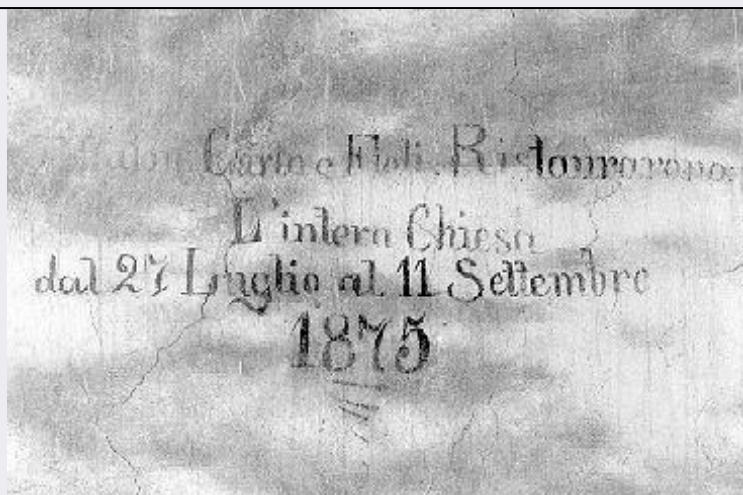 Carlo e Figli. Ristaurarono
L'intera Chiesa
dal 27 Luglio al 11 Settembre
1875